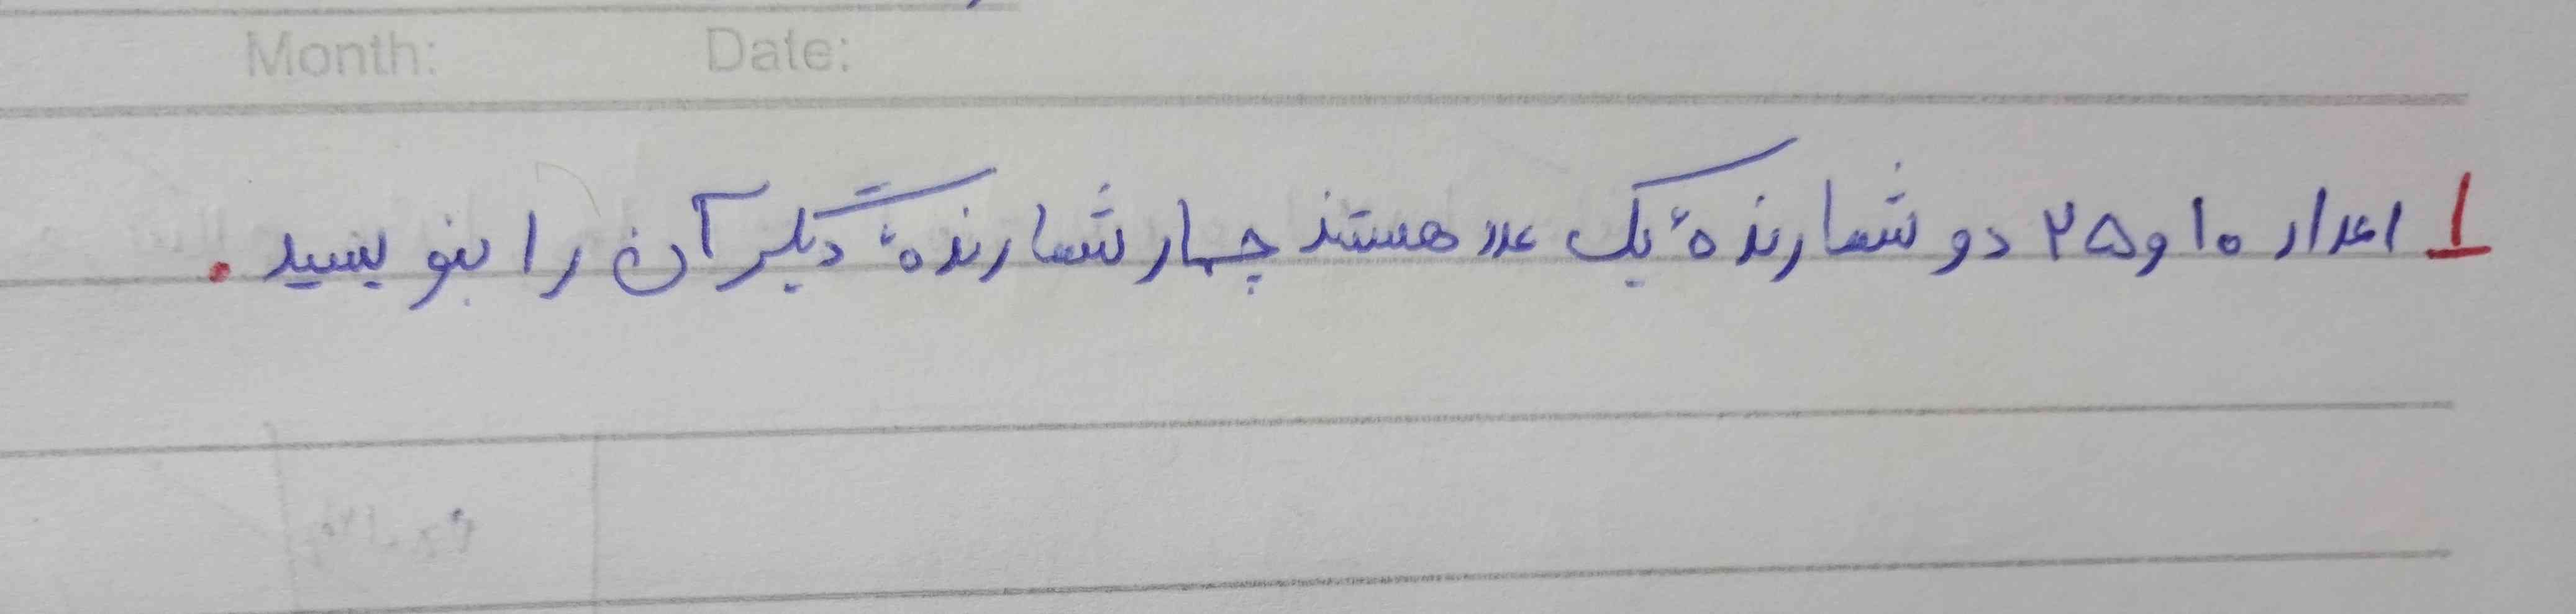 Month: Date:
۱ اعداد ۱۰ و ۲۵ دو شمارندهٔ یک عدد هستند چهار شمارندهٔ دیگر آن را بنویسید.